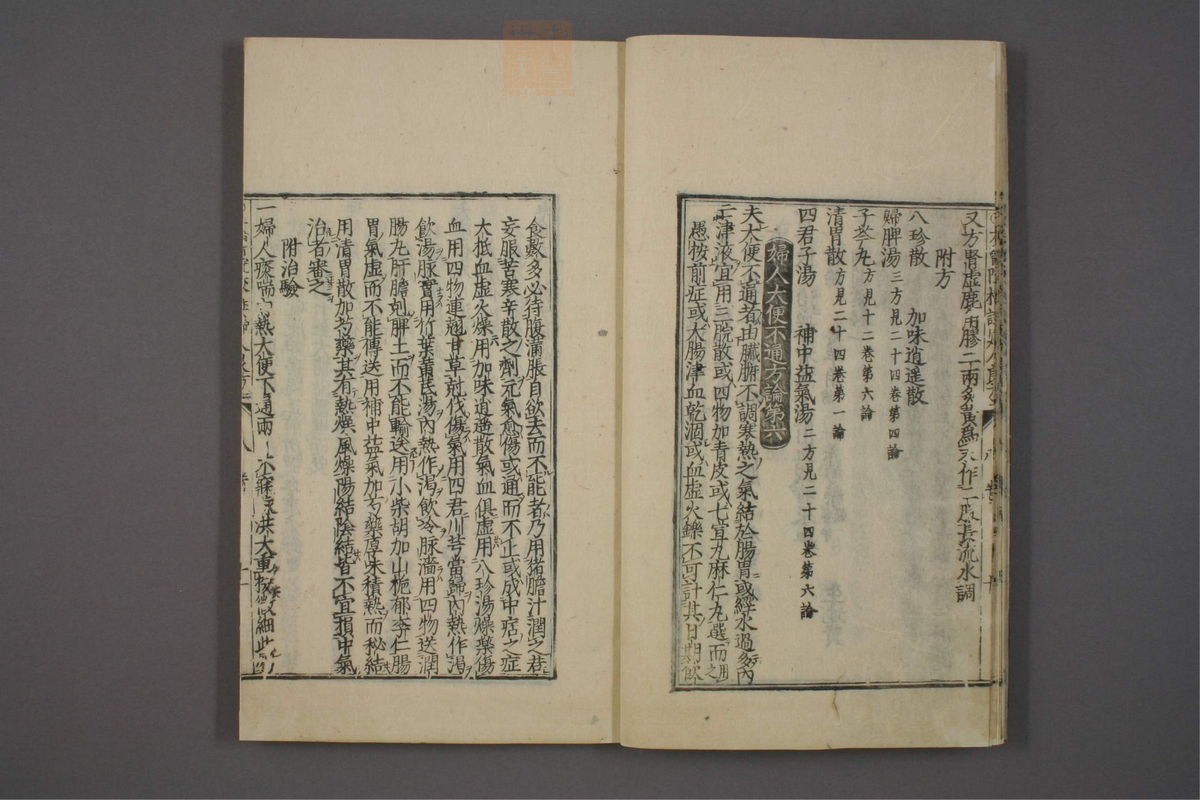 又方腎虛鹿角膠二兩爲末作一服長流水調
附方
八珍散 加味逍遥散
歸脾湯三方見二十四卷第四論
子芩丸方見十二卷第六論
清胃散方見二十四卷第一論
四君子湯 補中益氣湯二方見二十四卷第六論
婦人大便不通方論第六
夫大便不通者由臓腑不調寒熱之氣結於腸胃或經水過多內
亡津液宜用三脘散或四物加青皮或七宣丸麻仁丸選而用之
愚按前症或大腸津血乾涸或血虛火鑠不可計其日期飲
食數多必待腹滿脹自欲去而不能者乃用猪膽汁潤之若
妄服苦寒辛散之劑元氣愈傷或通而不止或成中痞之症
大抵血虛火燥用加味逍遥散氣血俱虛用八珍湯燥藥傷
血用四物連翹甘草尅伐傷氣用四君川芎當歸內熱作渴
飲湯脉實用竹葉黃芪湯內熱作渴飲冷脉濇用四物送潤
腸丸肝膽剋脾土而不能輸送用小柴胡加山梔郁李仁腸
胃氣虛而不能傳送用補中益氣加芍藥厚味積熱而秘結
用清胃散加芍藥其有熱燥風燥陽結陰結皆不宜損中氣
治者審之
附治驗
一婦人痰喘內熱大便不通兩月不寐脉洪大重按微細此